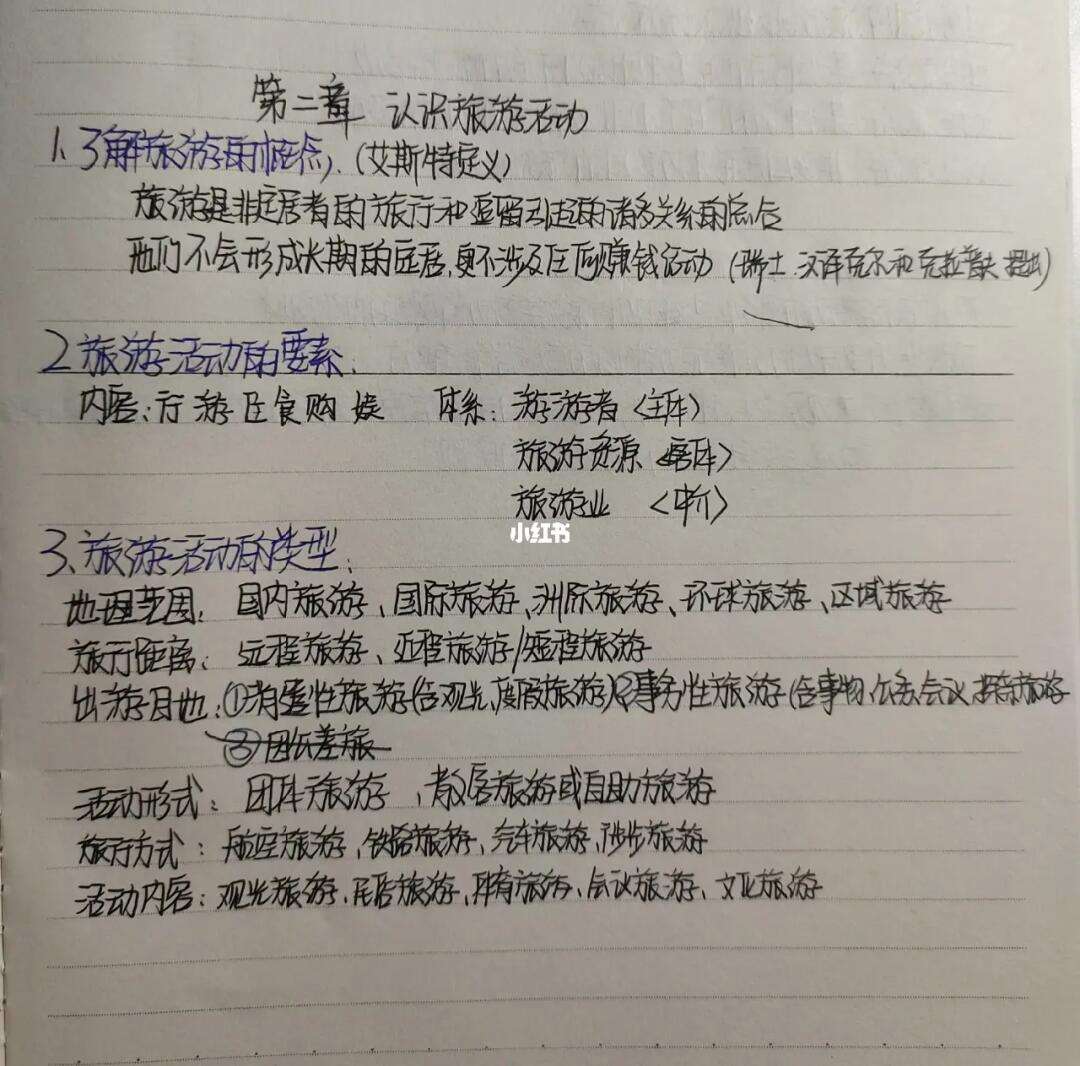 第二章 认识旅游活动
1、了解旅游的概念,(艾斯特定义)
旅游是非定居者的旅行和逗留引起的诸多关系的总合
他们不会形成长期的定居,更不涉及任何赚钱活动 (瑞士 汉泽克尔和克拉普夫 提出)
2 旅游活动的要素:
内容:行 游 住 食 购 娱 体系:游游者〈主体〉
旅游资源〈客体〉
旅游业〈中介〉
小红书
3、旅游活动的类型:
地理范围:国内旅游、国际旅游、洲际旅游、环球旅游、区域旅游
旅行距离:远程旅游、近程旅游/短程旅游
出游目地:①消遣性旅游(含观光、度假旅游)②事务性旅游(含事物、公务会议 探亲旅游
③因私差旅
活动形式:团体旅游、散客旅游或自助旅游
旅行方式:航空旅游、铁路旅游、汽车旅游、徒步旅游
活动内容:观光旅游、民俗旅游、体育旅游、会议旅游、文化旅游